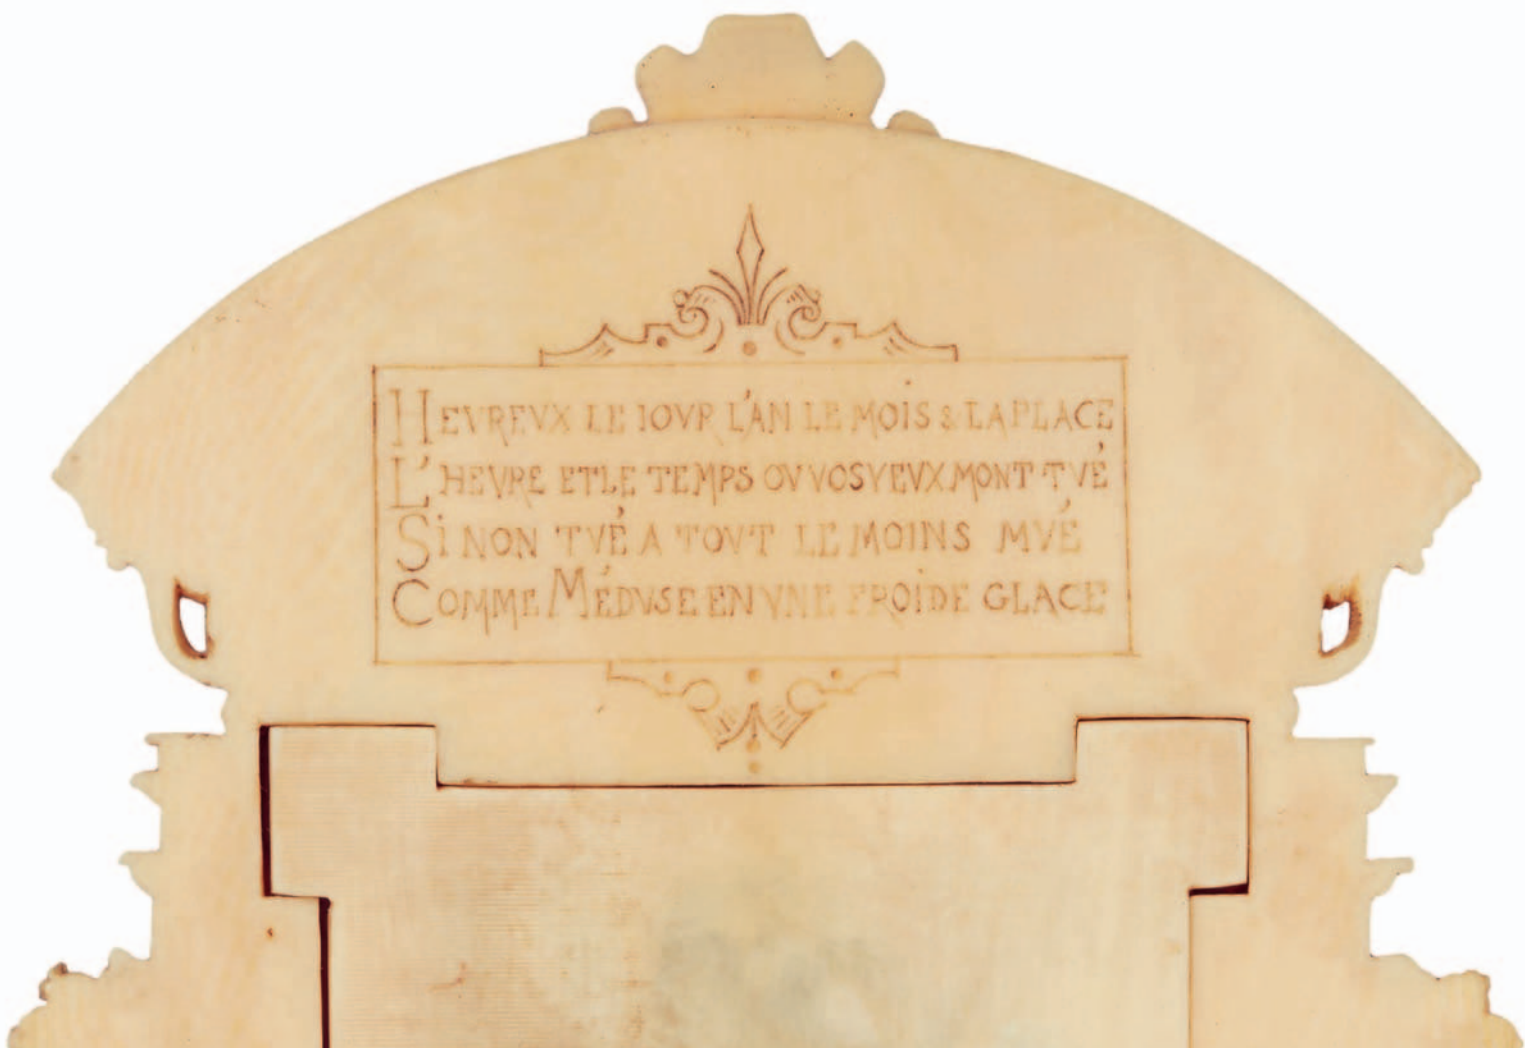 HEVREVX LE IOVR L'AN LE MOIS & LA PLACE
L'HEVRE ET LE TEMPS OV VOS YEVX MONT TVÉ
SINON TVÉ A TOVT LE MOINS MVÉ
COMME MÉDVSE EN VNE FROIDE GLACE